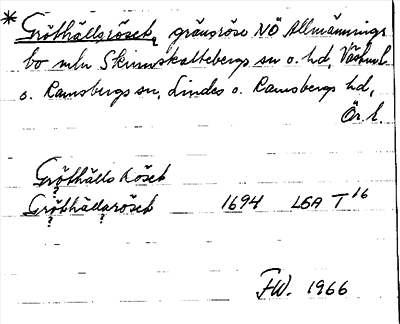 * Gröthällsröset, gränsröse NÖ Allmännings
bo mln Skinnskattebergs sn o. hd, Västml.
o. Ramsbergs sn, Lindes o. Ramsbergs hd,
Ör. l.
Gröthälls Röset
Gröthällaröset 1694 LSA T 16
FW. 1966